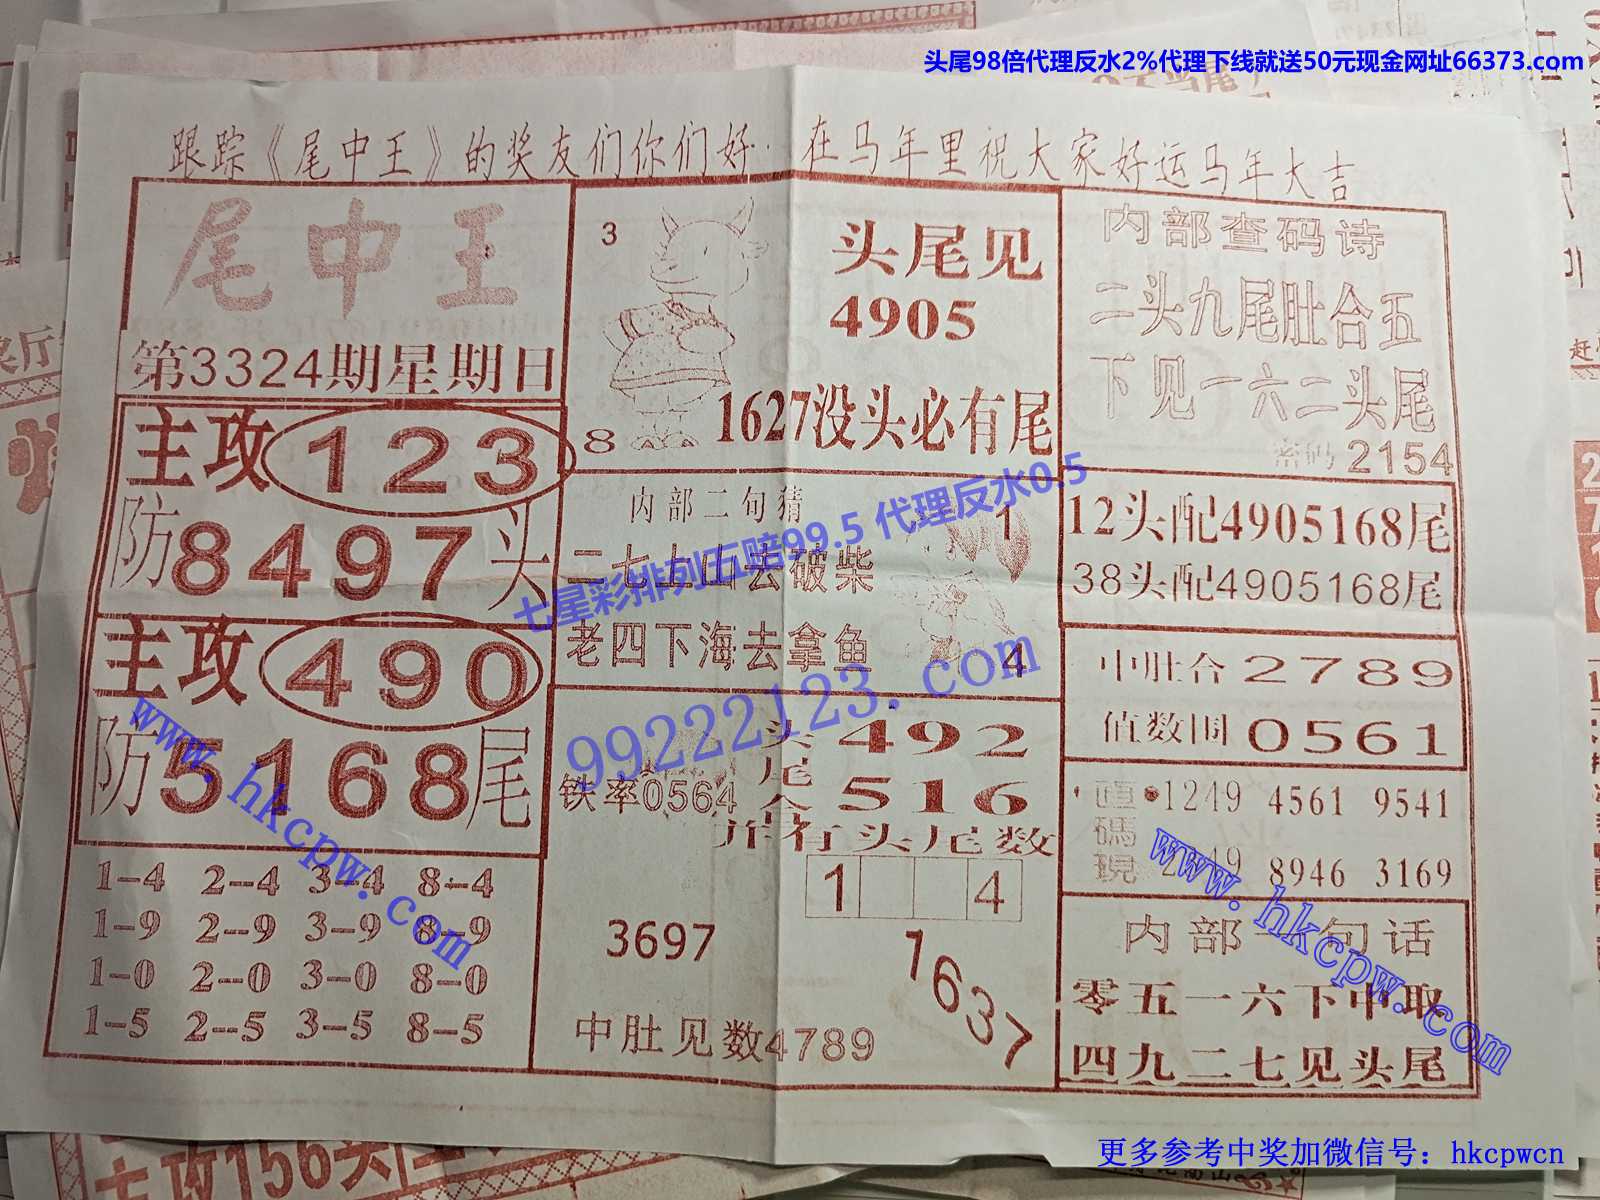 头尾98倍代理反水2%代理下线就送50元现金网址66373.com
跟踪《尾中王》的奖友们你们好. 在马年里祝大家好运马年大吉
尾中王
第3324期星期日
主攻 123
防8497头
主攻 490
防5168尾
1--4 2--4 3--4 8--4
1--9 2--9 3--9 8--9
1--0 2--0 3--0 8--0
1--5 2--5 3--5 8--5
3
8
头尾见
4905
1627没头必有尾
内部二句猜
二七上山去破柴
老四下海去拿鱼
1
4
铁率0564
头尾合
492
516
并有头尾数
1 4
3697
1637
中肚见数4789
内部查码诗
二头九尾肚合五
下见一六二头尾
密码2154
12头配4905168尾
38头配4905168尾
中肚合2789
值数围0561
直碼現
1249 4561 9541
8946 3169
内部一句话
零五一六下中取
四九二七见头尾
七星彩排列五赔99.5 代理反水0.5
99222123.com
www.hkcpw.com
www.hkcpw.com
主攻156头
更多参考中奖加微信号：hkcpwcn